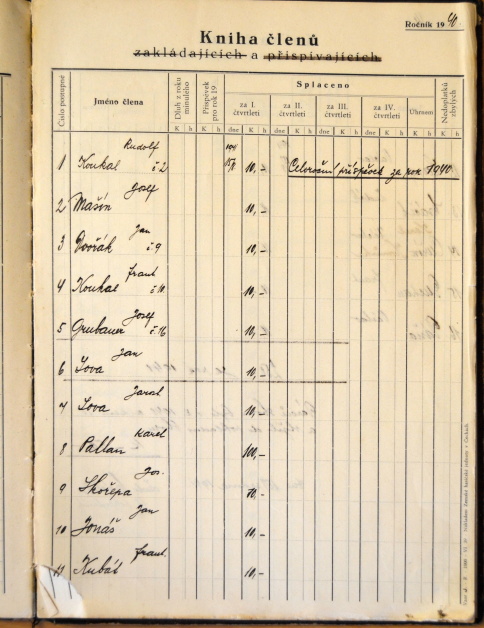 Ročník 1940.
Kniha členů
zakládajících a přispívajících
Číslo postupné
Jméno člena
Dluh z roku minulého
Příspěvek pro rok 19
Splaceno
za I. čtvrtletí
za II. čtvrtletí
za III. čtvrtletí
za IV. čtvrtletí
Úhrnem
Nedoplatků zbylých
K h K h dne K h dne K h dne K h dne K h K h K h
1 Koukal Rudolf č.2 10,- Celoroční příspěvek za rok 1940
2 Mašín Josef 10,-
3 Dvořák Jan č.9 10,-
4 Koukal Frant č.10 10,-
5 Grubauer Josef č.16 10,-
6 Sova Jan 10,-
7 Sova Jarosl 10,-
8 Pallan Karel 100,-
9 Skořepa Jos. 10,-
10 Jonáš Jan 10,-
11 Kubát Frant. 10,-